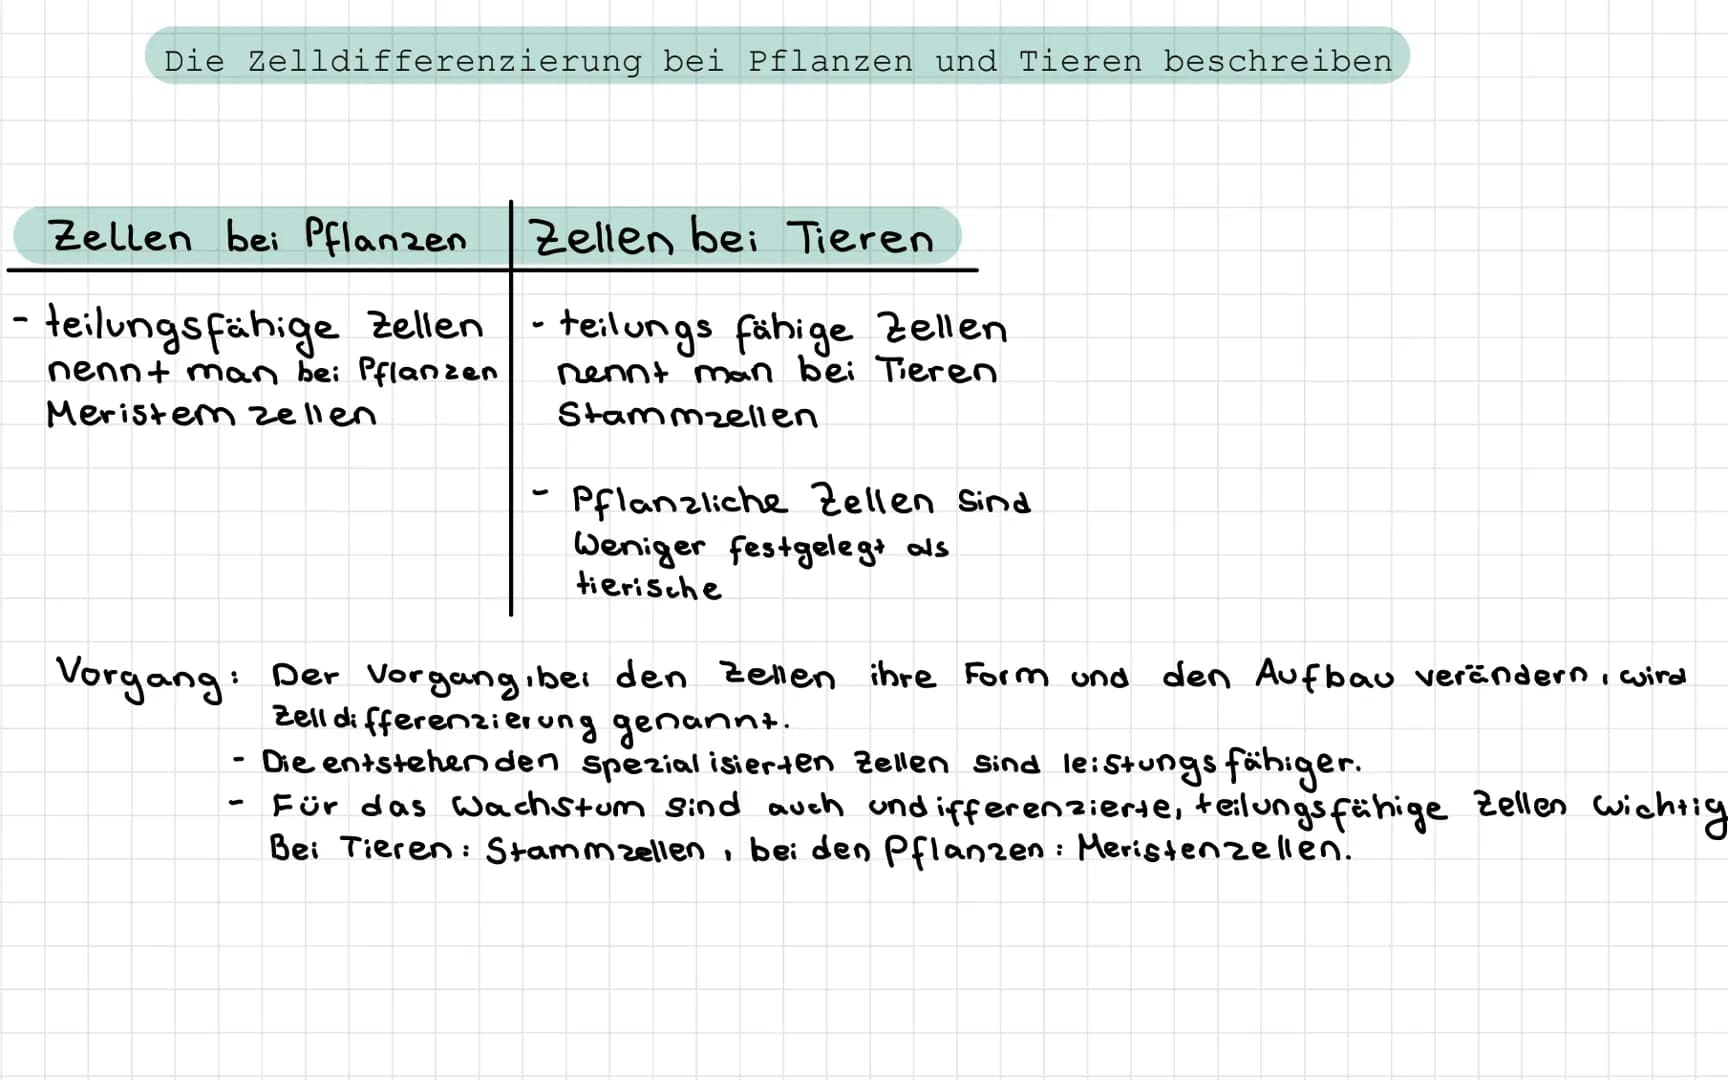 Die Zelldifferenzierung bei Pflanzen und Tieren beschreiben
Zellen bei Pflanzen
- teilungsfähige Zellen
nennt man bei Pflanzen
Meristemzellen
Zellen bei Tieren
- teilungsfähige Zellen
nennt man bei Tieren
Stammzellen
- Pflanzliche Zellen sind
weniger festgelegt als
tierische
Vorgang: Der Vorgang, bei den Zellen ihre Form und den Aufbau verändern, wird
Zelldifferenzierung genannt.
- Die entstehenden spezialisierten Zellen sind leistungsfähiger.
- Für das Wachstum sind auch undifferenzierte, teilungsfähige Zellen wichtig
Bei Tieren: Stammzellen, bei den Pflanzen: Meristenzellen.